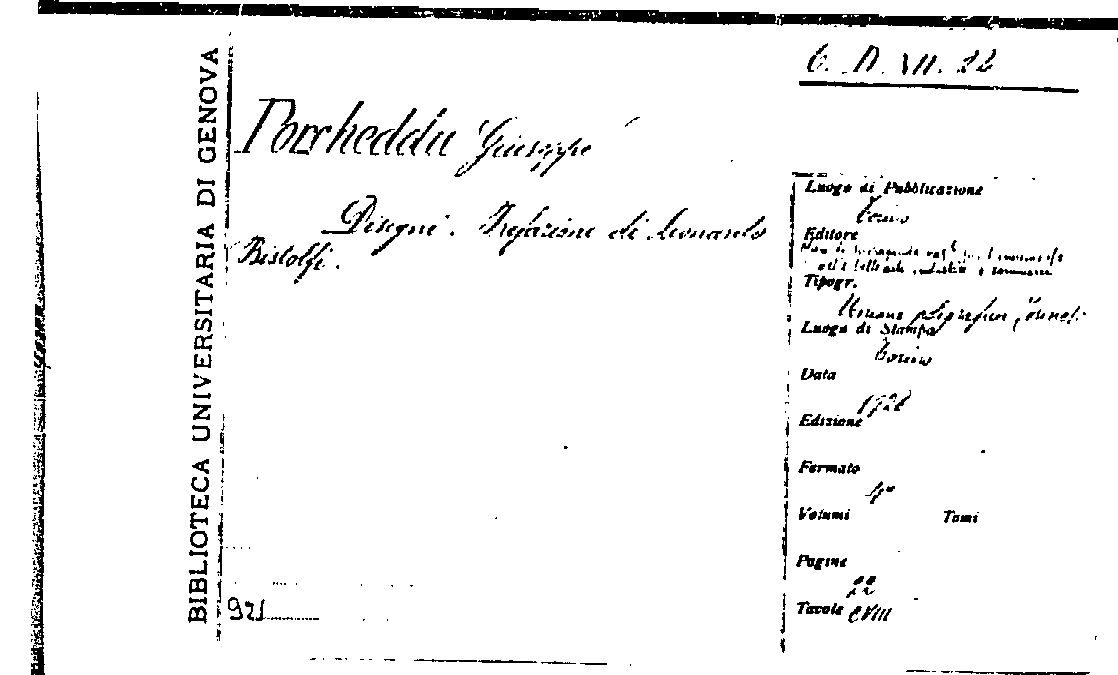 BIBLIOTECA UNIVERSITARIA DI GENOVA
6. D. VII. 22
Porcheddu Giuseppe
Disegni. Prefazione di Leonardo
Bistolfi.
Luogo di Pubblicazione
Torino
Editore
Tipogr.
Luogo di Stampa
Torino
Data
192
Edizione
Formato
4°
Volumi Tomi
Pagine
22
Tavole CVIII
921